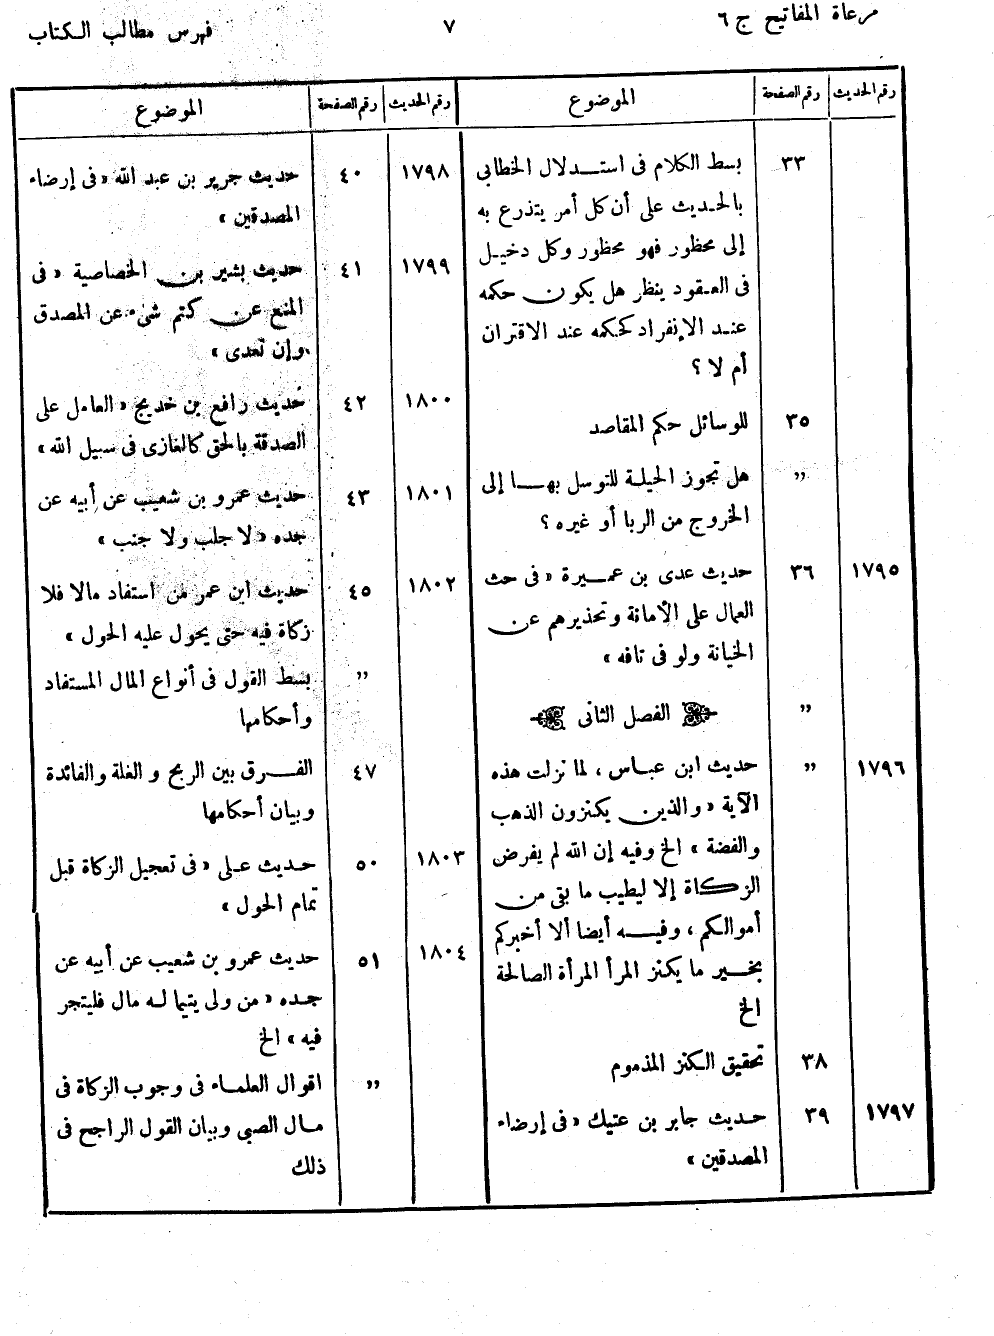 مرعاة المفاتيح ج ٦
٧
فهرس مطالب الكتاب
رقم الحديث رقم الصفحة الموضوع
٣٣ بسط الكلام فى استدلال الخطابى
بالحديث على أن كل أمر يتذرع به
إلى محظور فهو محظور وكل دخيل
فى العقود ينظر هل يكون حكمه
عند الإنفراد كحكمه عند الاقتران
أم لا ؟
٣٥ للوسائل حكم المقاصد
,, هل تجوز الحيلة للتوسل بها إلى
الخروج من الربا أو غيره ؟
١٧٩٥ ٣٦ حديث عدى بن عميرة « فى حث
العمال على الأمانة وتحذيرهم عن
الخيانة ولو فى تافه »
,, الفصل الثانى
١٧٩٦ ,, حديث ابن عباس ، لما نزلت هذه
الآية « والذين يكنزون الذهب
والفضة » الخ وفيه إن الله لم يفرض
الزكاة إلا ليطيب ما بقى من
أموالكم ، وفيه أيضا ألا أخبركم
بخير ما يكنز المرأ المرأة الصالحة
الخ
٣٨ تحقيق الكنز المذموم
١٧٩٧ ٣٩ حديث جابر بن عتيك « فى إرضاء
المصدقين »
رقم الحديث رقم الصفحة الموضوع
١٧٩٨ ٤٠ حديث جرير بن عبد الله « فى إرضاء
المصدقين »
١٧٩٩ ٤١ حديث بشير بن الخصاصية « فى
المنع عن كتم شىء عن المصدق
وإن تعدى »
١٨٠٠ ٤٢ حديث رافع بن خديج « العامل على
الصدقة بالحق كالغازى فى سبيل الله »
١٨٠١ ٤٣ حديث عمرو بن شعيب عن أبيه عن
جده « لا جلب ولا جنب »
١٨٠٢ ٤٥ حديث ابن عمر من استفاد مالا فلا
زكاة فيه حتى يحول عليه الحول »
,, بسط القول فى أنواع المال المستفاد
وأحكامها
٤٧ الفرق بين الربح و الغلة والفائدة
وبيان أحكامها
١٨٠٣ ٥٠ حديث على « فى تعجيل الزكاة قبل
تمام الحول »
١٨٠٤ ٥١ حديث عمرو بن شعيب عن أبيه عن
جده « من ولى يتيما له مال فليتجر
فيه » الخ
,, اقوال العلماء فى وجوب الزكاة فى
مال الصبى وبيان القول الراجح فى
ذلك